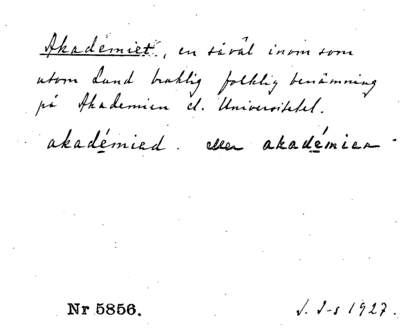 Akadémiet, en såväl inom som
utom Lund bruklig folklig benämning
på Akademien el. Universitetet.
akadémied. eller akadémien.
Nr 5856.
J. J-s 1927.